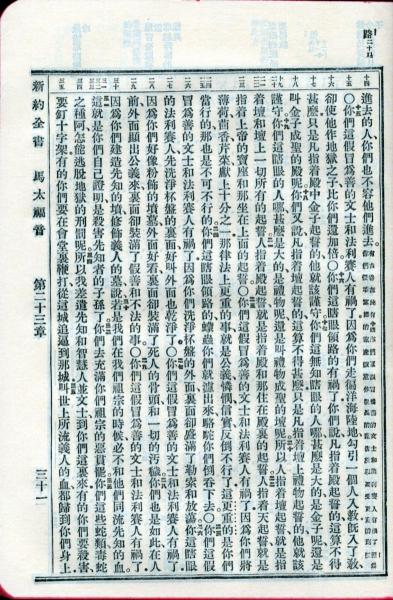 進去的人你們也不容他們進去。
○你們這假冒爲善的文士和法利賽人有禍了因爲你們走徧洋海陸地勾引一個人入教旣入了教
卻使他作地獄之子比你們還加倍○你們這瞎眼領路的有禍了你們說凡指着殿起誓的這算不得
甚麼只是凡指着殿中金子起誓的他就該謹守你們這無知瞎眼的人哪甚麼是大的是金子呢還是
叫金子成聖的殿呢你們又說凡指着壇起誓的這算不得甚麼只是凡指着壇上禮物起誓的他就該
謹守你們這瞎眼的人哪甚麼是大的是禮物呢還是叫禮物成聖的壇呢所以人指着壇起誓就是指
着壇和壇上一切所有的起誓人指着殿起誓就是指着殿和那住在殿裏的起誓人指着天起誓就是
指着上帝的寶座和那坐在上面的起誓○你們這假冒爲善的文士和法利賽人有禍了因爲你們將
薄荷茴香芹菜獻上十分之一那律法上更重的事就是公義憐憫信實反倒不行了這更重的是你們
當行的那也是不可不行的你們這瞎眼領路的蠓蟲你們就濾出來駱駝你們倒吞下去○你們這假
冒爲善的文士和法利賽人有禍了因爲你們洗淨杯盤的外面裏面卻盛滿了勒索和放蕩你這瞎眼
的法利賽人先洗淨杯盤的裏面好叫外面也乾淨了○你們這假冒爲善的文士和法利賽人有禍了
因爲你們好像粉飾的墳墓外面好看裏面卻裝滿了死人的骨頭和一切的污穢你們也是如此在人
前外面顯出公義來裏面卻裝滿了假善和不法的事○你們這假冒爲善的文士和法利賽人有禍了
因爲你們建造先知的墳修飾義人的墓說若是我們在我們祖宗的時候必不和他們同流先知的血
這就是你們自己證明是殺害先知者的子孫了你們去充滿你們祖宗的惡貫罷你們這些蛇類毒蛇
之種阿怎能逃脫地獄的刑罰呢所以我差遣先知和智慧人並文士到你們這裏來有的你們要殺害
要釘十字架有的你們要在會堂裏鞭打從這城追逼到那城叫世上所流義人的血都歸到你們身上
新約全書 馬太福音 第二十三章 三十一